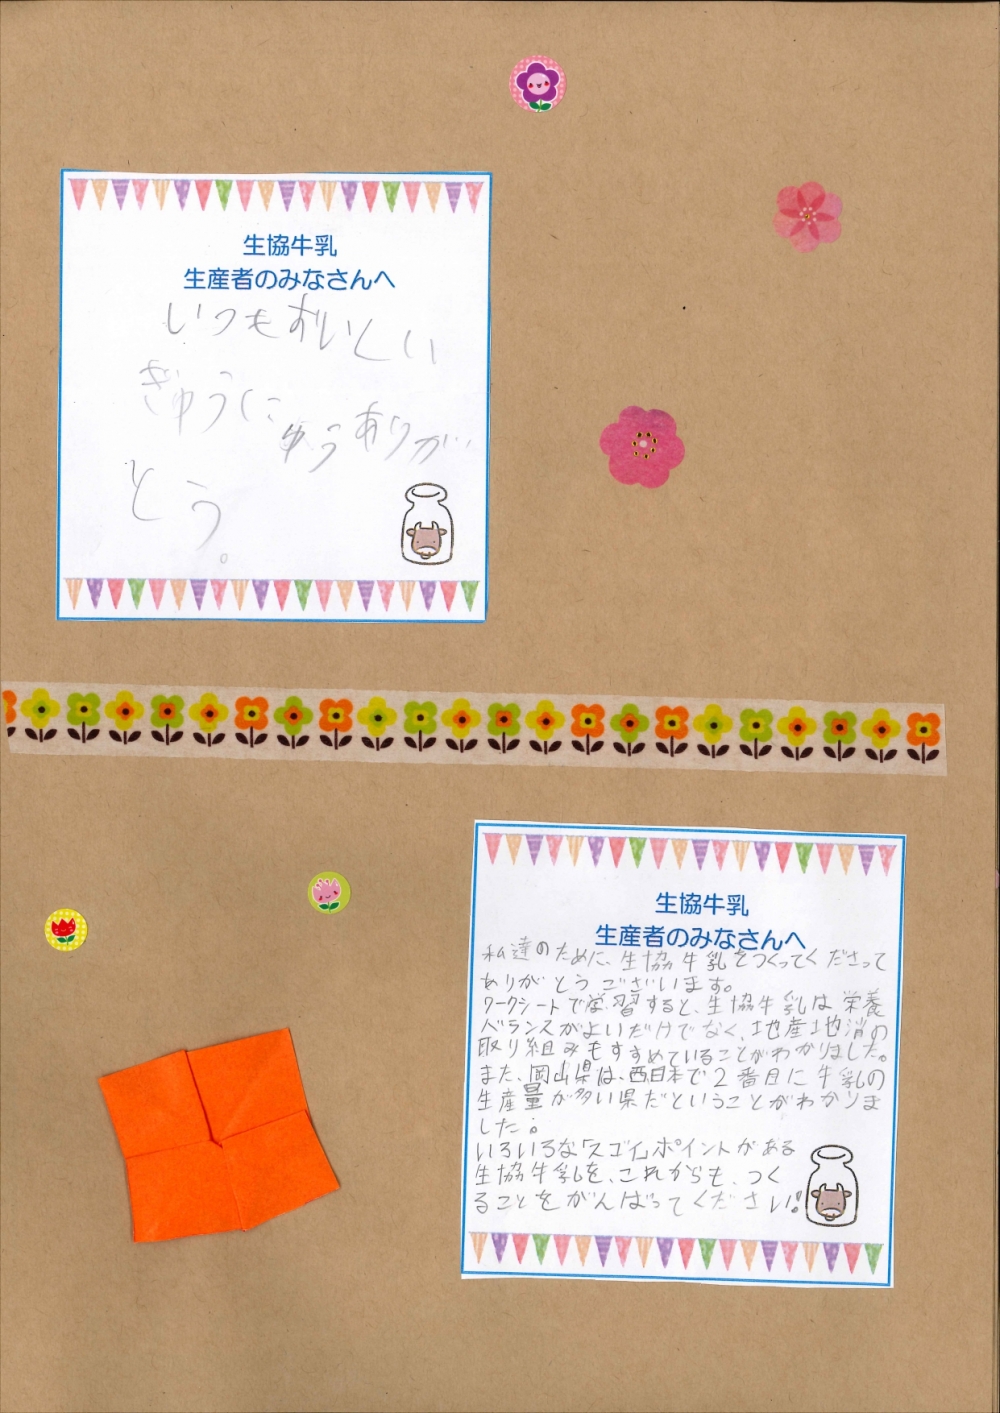 生協牛乳
生産者のみなさんへ
いつもおいしい
ぎゅうにゅうありが
とう。
生協牛乳
生産者のみなさんへ
私達のために、生協牛乳をつくってくださって
ありがとうございます。
ワークシートで学習すると、生協牛乳は栄養
バランスがよいだけでなく、地産地消の
取り組みもすすめていることがわかりました。
また、岡山県は、西日本で2番目に牛乳の
生産量が多い県だということがわかりま
した。
いろいろな「スゴイ」ポイントがある
生協牛乳を、これからも、つく
ることをがんばってください!